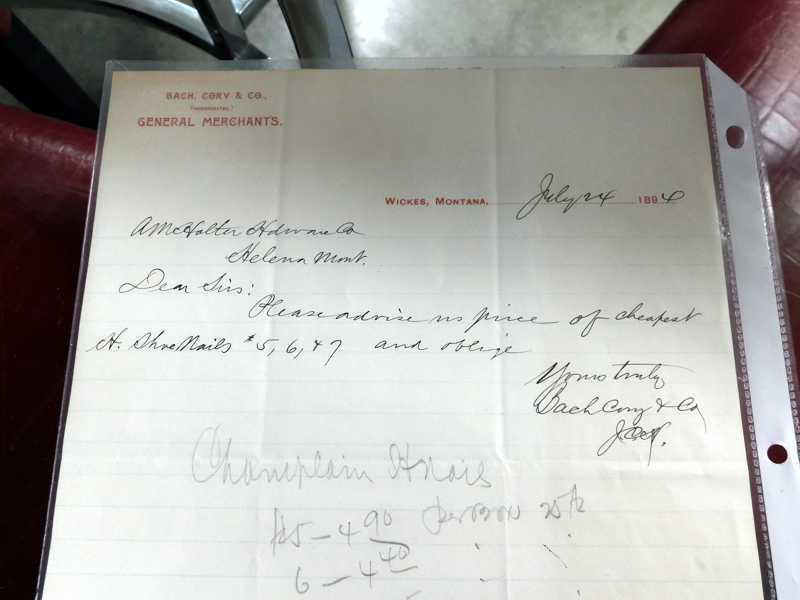 BACH, CORY & CO.,
(INCORPORATED.)
GENERAL MERCHANTS.
WICKES, MONTANA. July 24 1894
A M Holter Hdware Co
Helena Mont.
Dear Sirs:
Please advise us price of cheapest
H. Shoe Nails #5, 6, & 7 and oblige
Yours truly
Bach Cory & Co
Champlain H nails
#5 – 4 90 per box 25 lb
6 – 4 40 " "